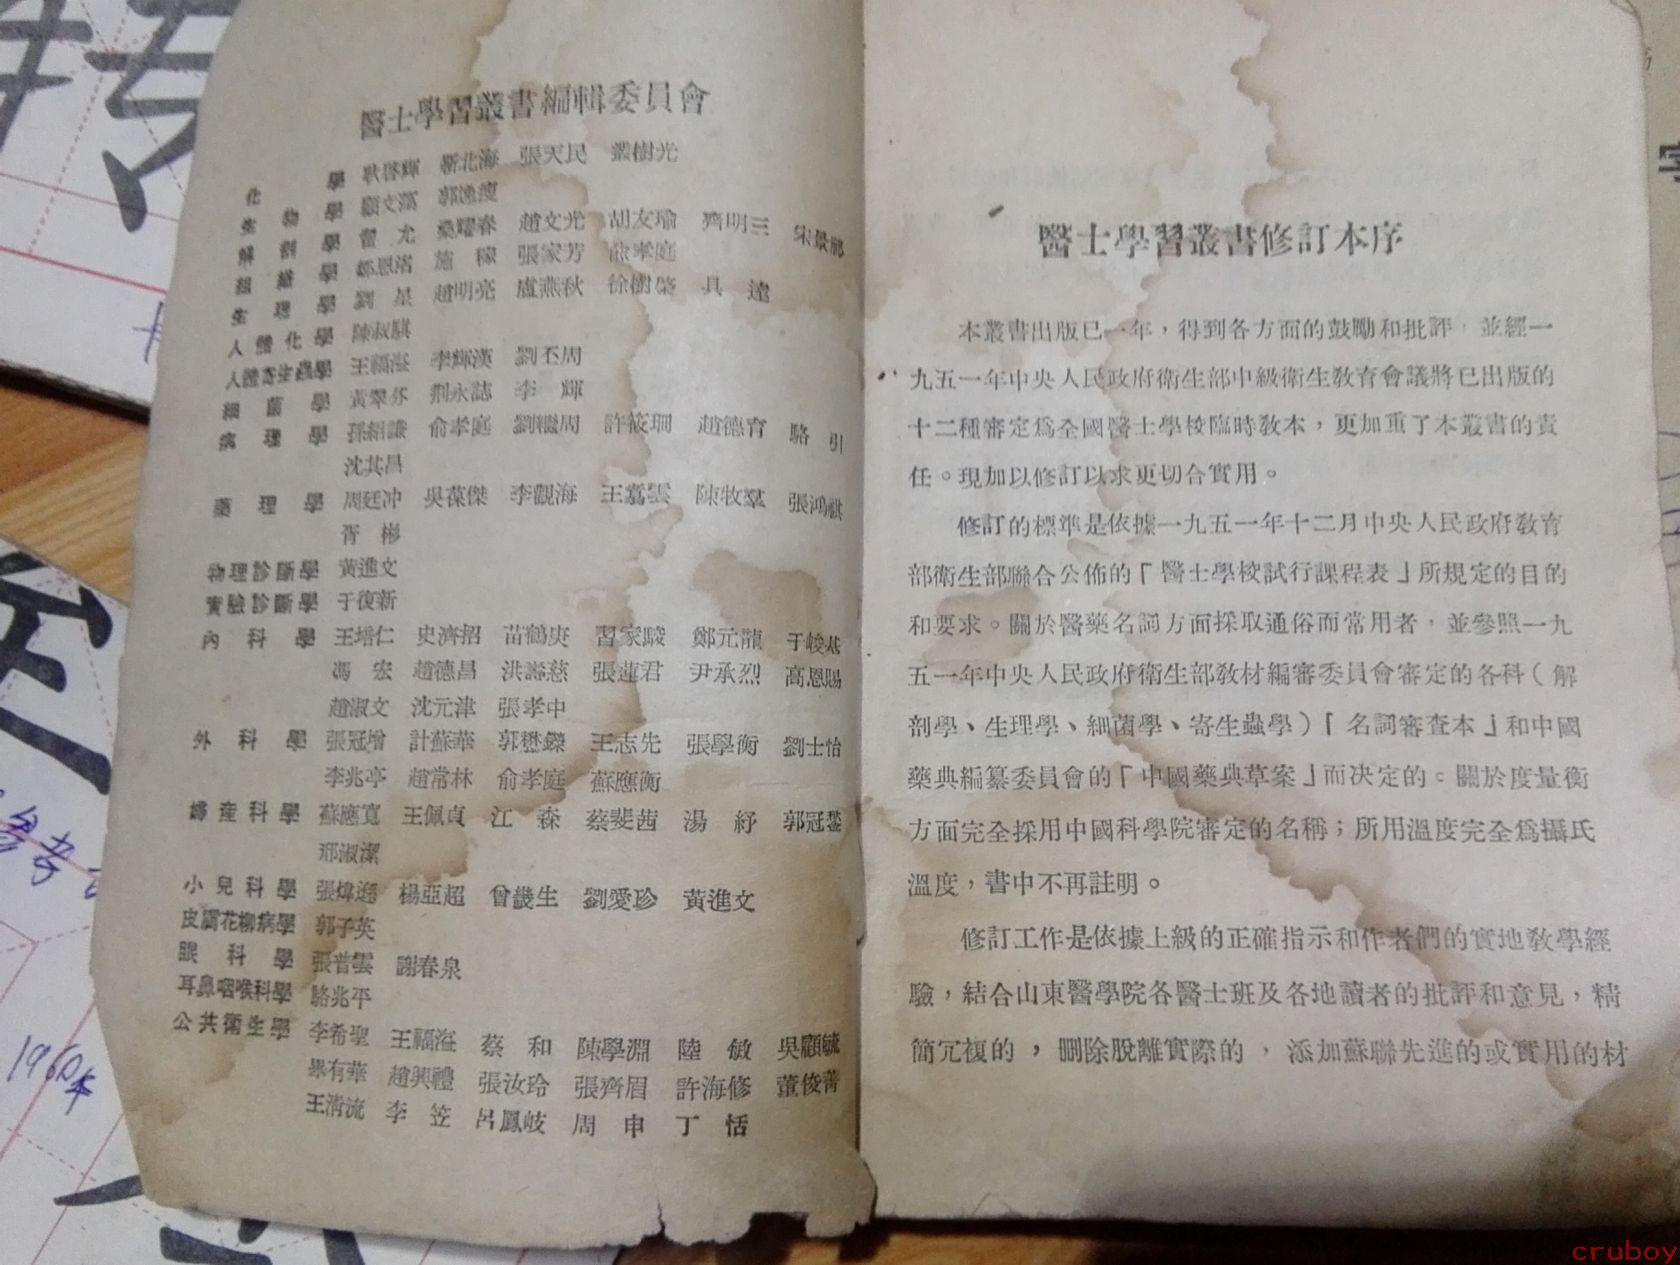 醫士學習叢書編輯委員會
化學 耿啓輝 靳北海 張天民 叢樹光
生物學 顧文藻 郭逸瘦
解剖學 曹尤 桑曜春 趙文光 胡友瑜 齊明三 宋景郕
組織學 鄭恩渚 施稼 張家芳 俞孝庭
生理學 劉星 趙明亮 盧燕秋 徐樹棨 具達
人體化學 陳叔騏
人體寄生蟲學 王福溢 李輝漢 劉丕周
細菌學 黃翠芬 荆永誌 李輝
病理學 孫紹謙 俞孝庭 劉繼周 許筱珊 趙德育 駱引
沈其昌
藥理學 周廷冲 吳葆傑 李觀海 王嵩雲 陳牧羣 張鴻祺
胥彬
物理診斷學 黃進文
實驗診斷學 于復新
內科學 王培仁 史濟招 苗鶴庚 習家駿 鄭元龍 于峻基
馮宏 趙德昌 洪壽慈 張蓮君 尹承烈 高恩賜
趙淑文 沈元津 張孝中
外科學 張冠增 計蘇華 郭懋鑅 王志先 張學衡 劉士怡
李兆亭 趙常林 俞孝庭 蘇應衡
婦產科學 蘇應寬 王佩貞 江森 蔡斐茜 湯紓 郭冠鋆
邢淑潔
小兒科學 張煒遜 楊亞超 曾畿生 劉愛珍 黃進文
皮膚花柳病學 郭子英
眼科學 張普雲 謝春泉
耳鼻咽喉科學 駱兆平
公共衛生學 李希聖 王福溢 蔡和 陳學淵 陸敏 吳顧毓
畢有華 趙興禮 張汝玲 張齊眉 許海修 董俊菁
王清流 李笠 呂鳳岐 周申 丁恬
醫士學習叢書修訂本序
本叢書出版已一年，得到各方面的鼓勵和批評，並經一
九五一年中央人民政府衛生部中級衛生教育會議將已出版的
十二種審定爲全國醫士學校臨時教本，更加重了本叢書的責
任。現加以修訂以求更切合實用。
修訂的標準是依據一九五一年十二月中央人民政府教育
部衛生部聯合公佈的「醫士學校試行課程表」所規定的目的
和要求。關於醫藥名詞方面採取通俗而常用者，並參照一九
五一年中央人民政府衛生部教材編審委員會審定的各科（解
剖學、生理學、細菌學、寄生蟲學）「名詞審查本」和中國
藥典編纂委員會的「中國藥典草案」而決定的。關於度量衡
方面完全採用中國科學院審定的名稱；所用溫度完全爲攝氏
溫度，書中不再註明。
修訂工作是依據上級的正確指示和作者們的實地教學經
驗，結合山東醫學院各醫士班及各地讀者的批評和意見，精
簡冗複的，刪除脫離實際的，添加蘇聯先進的或實用的材
參考
1960年
cruboy